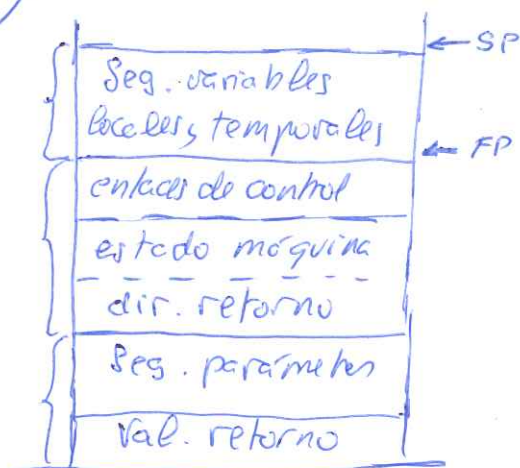 ← SP
Seg. variables
locales, temporales
← FP
enlaces de control
estado máquina
dir. retorno
Seg. parámetros
Val. retorno